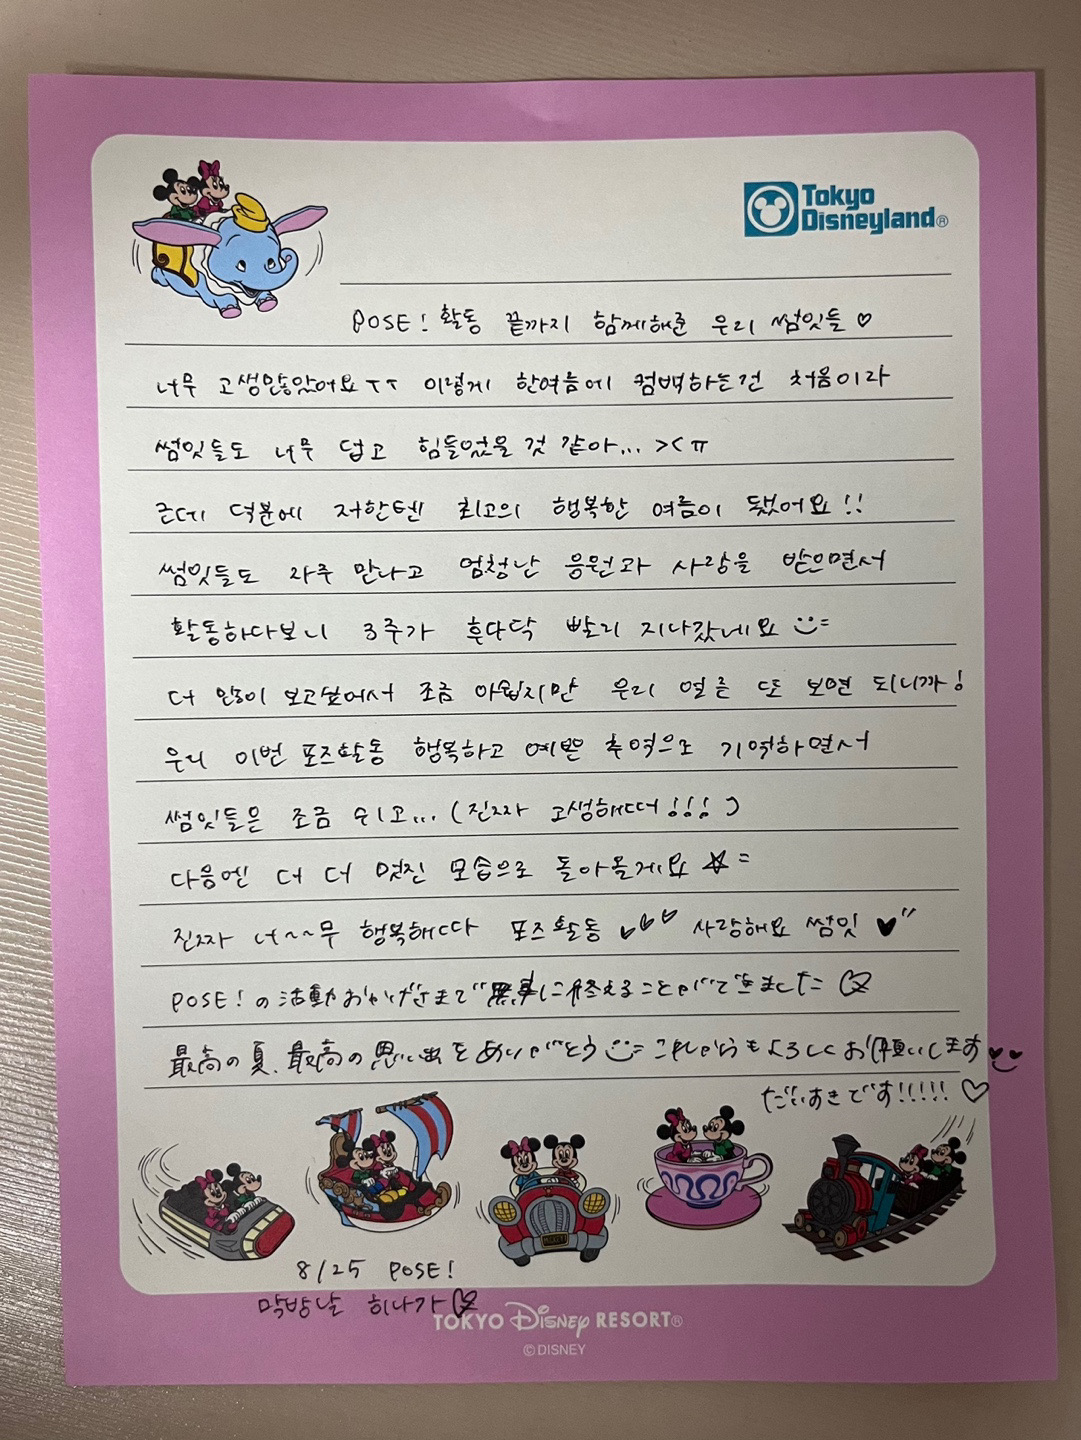 Tokyo
Disneyland®
POSE! 활동 끝까지 함께해준 우리 썸잇들 ♡
너무 고생많았어요ㅜㅜ 이렇게 한여름에 컴백하는건 처음이라
썸잇들도 너무 덥고 힘들었을 것 같아... ><ㅠ
근데 덕분에 저한텐 최고의 행복한 여름이 됐어요!!
썸잇들도 자주 만나고 엄청난 응원과 사랑을 받으면서
활동하다보니 3주가 후다닥 빨리 지나갔네요
더 많이 보고싶어서 조금 아쉽지만 우리 얼른 또 보면 되니까!
우리 이번 포즈활동 행복하고 예쁜 추억으로 기억하면서
썸잇들은 조금 쉬고... (진짜 고생해따!!!)
다음엔 더 더 멋진 모습으로 돌아올게요 ☆
진짜 너~~무 행복해따 포즈활동 ♡♡♡ 사랑해요 썸잇 ♥
POSE!の活動おかげさまで無事に終えることができました
最高の夏、最高の思い出をありがとう これからもよろしくお願いします
だいすきです!!!!! ♡
8/25 POSE!
막방날 히나가
TOKYO Disney RESORT®
©DISNEY